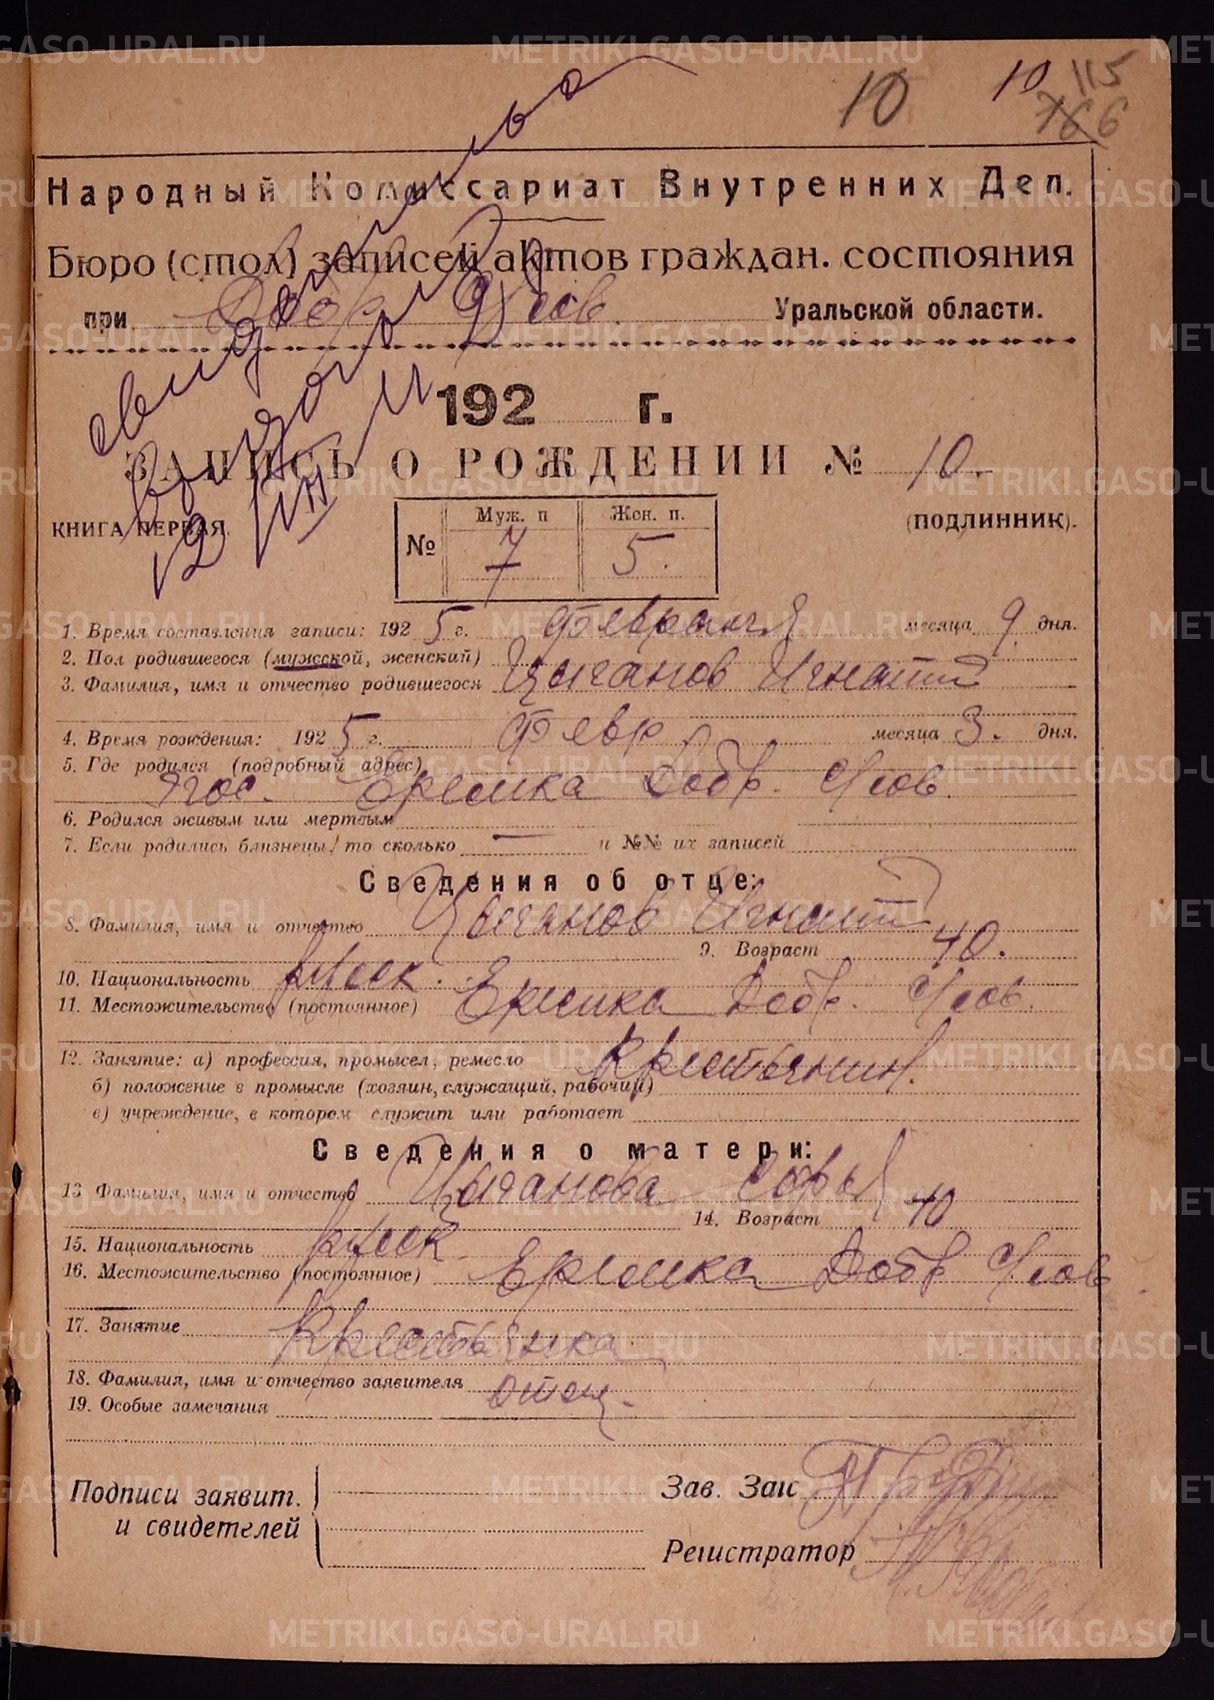 10 10 115
766
Народный Комиссариат Внутренних Дел.
Бюро (стол) записей актов граждан. состояния
при Добр. Уральской области.
192 г.
ЗАПИСЬ О РОЖДЕНИИ № 10.
КНИГА ПЕРВАЯ. (ПОДЛИННИК).
Муж. п Жен. п.
№ 7 5.
1. Время составления записи: 1925 г. февраля месяца 9 дня.
2. Пол родившегося (мужской, женский)
3. Фамилия, имя и отчество родившегося Цыганов Игнатий
4. Время рождения: 1925 г. февр месяца 3. дня.
5. Где родился (подробный адрес)
пос. Ермика Добр. С/сов.
6. Родился живым или мертвым
7. Если родились близнецы, то сколько — и №№ их записей
Сведения об отце:
8. Фамилия, имя и отчество Цыганов Игнатий
9. Возраст 40.
10. Национальность русск.
11. Местожительство (постоянное) Ермика Добр. С/сов.
12. Занятие: а) профессия, промысел, ремесло Крестьянин.
б) положение в промысле (хозяин, служащий, рабочий)
в) учреждение, в котором служит или работает
Сведения о матери:
13 Фамилия, имя и отчество Цыганова Софья
14. Возраст 40
15. Национальность русск
16. Местожительство (постоянное) Ермика Добр С/сов
17. Занятие Крестьянка
18. Фамилия, имя и отчество заявителя отец.
19. Особые замечания
Подписи заявит. Зав. Загс
и свидетелей
Регистратор
свидетельство
выдано
METRIKI.GASO-URAL.RU